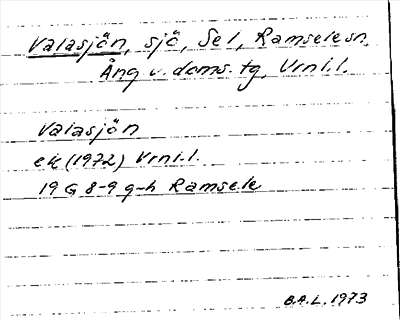 Valasjön, sjö, Sel, Ramsele sn,
Ång v. doms. tg, Vrnl.l.
Valasjön
ek (1972) Vrnl.l.
19 G 8-9 g-h Ramsele
B.A.L. 1973